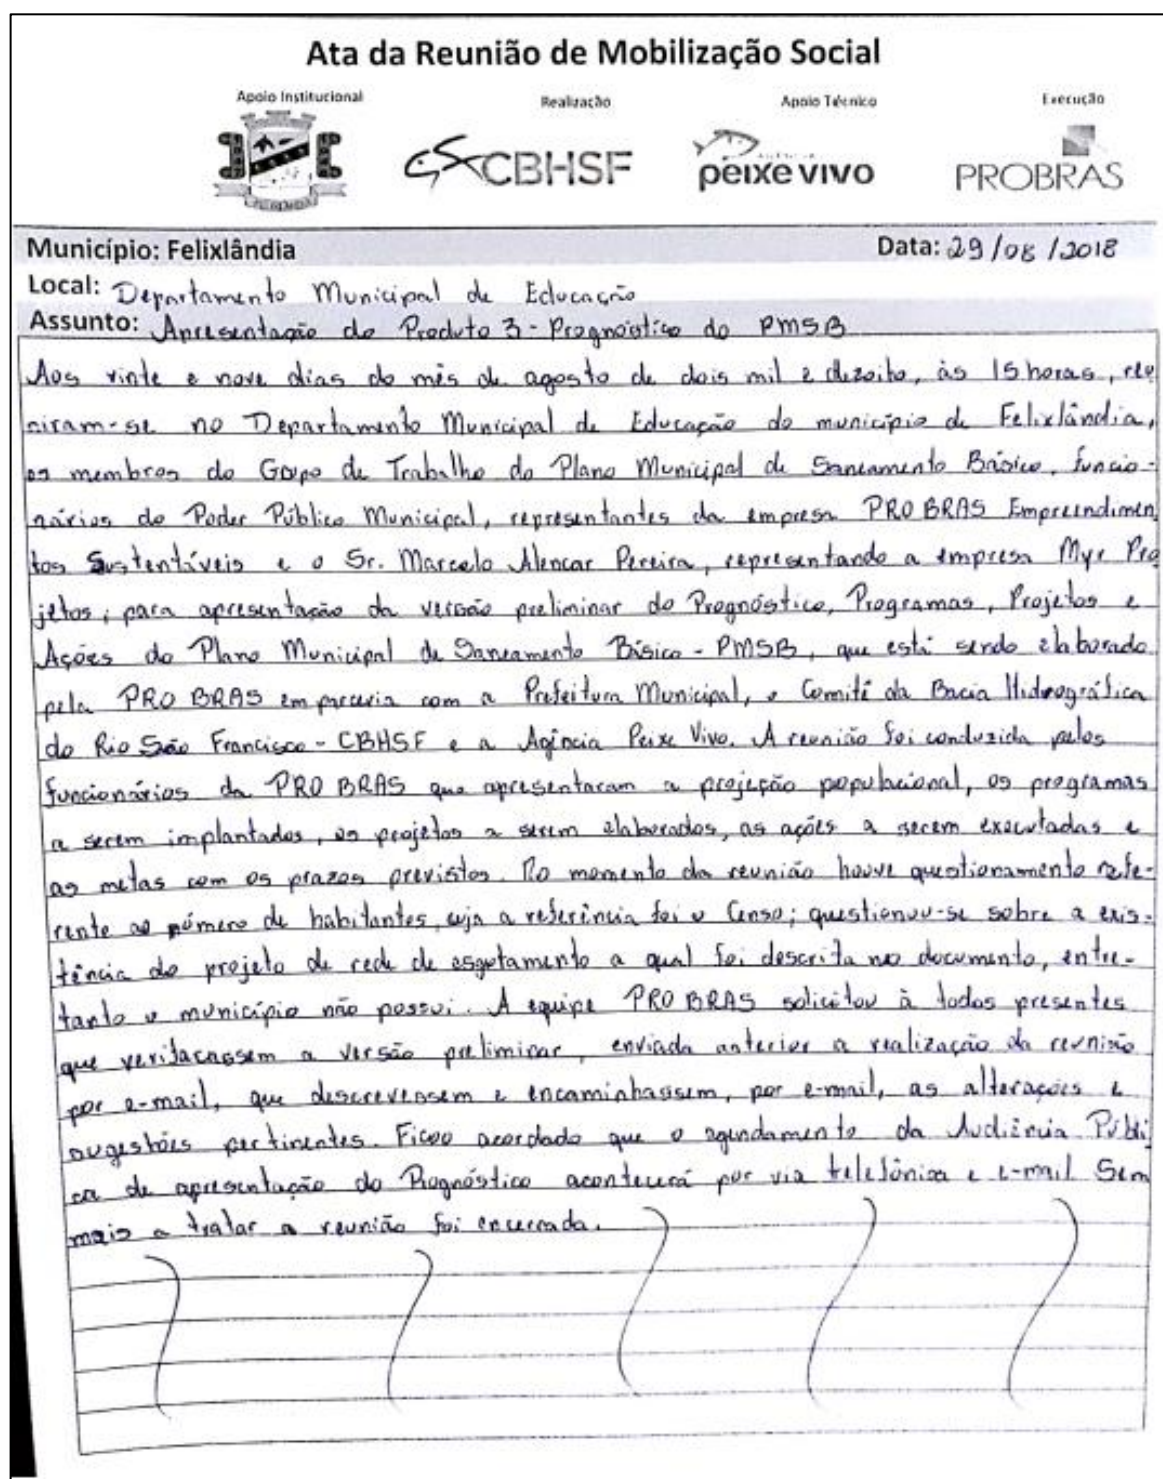 Ata da Reunião de Mobilização Social
Apoio Institucional Realização Apoio Técnico Execução
CBHSF peixe vivo PROBRAS
Município: Felixlândia Data: 29/08/2018
Local: Departamento Municipal de Educação
Assunto: Apresentação do Produto 3 - Prognóstico do PMSB
Aos vinte e nove dias do mês de agosto de dois mil e dezoito, às 15 horas, reu
niram-se no Departamento Municipal de Educação do município de Felixlândia,
os membros do Grupo de Trabalho do Plano Municipal de Saneamento Básico, funcio-
nários do Poder Público Municipal, representantes da empresa PRO BRAS Empreendimen
tos Sustentáveis e o Sr. Marcelo Alencar Pereira, representando a empresa Myr Pro
jetos; para apresentação da versão preliminar do Prognóstico, Programas, Projetos e
Ações do Plano Municipal de Saneamento Básico - PMSB, que está sendo elaborado
pela PRO BRAS em parceria com a Prefeitura Municipal, o Comitê da Bacia Hidrográfica
do Rio São Francisco - CBHSF e a Agência Peixe Vivo. A reunião foi conduzida pelos
funcionários da PRO BRAS que apresentaram a projeção populacional, os programas
a serem implantados, os projetos a serem elaborados, as ações a serem executadas e
as metas com os prazos previstos. No momento da reunião houve questionamento refe-
rente ao número de habitantes, cuja a referência foi o Censo; questionou-se sobre a exis-
tência do projeto de rede de esgotamento a qual foi descrita no documento, entre-
tanto o município não possui. A equipe PRO BRAS solicitou à todos presentes
que verifacassem a versão preliminar, enviada anterior a realização da reunião
por e-mail, que descrevessem e encaminhassem, por e-mail, as alterações e
sugestões pertinentes. Ficou acordado que o agendamento da Audiência Públi
ca de apresentação do Prognóstico acontecerá por via telefônica e e-mail Sem
mais a tratar a reunião foi encerrada.